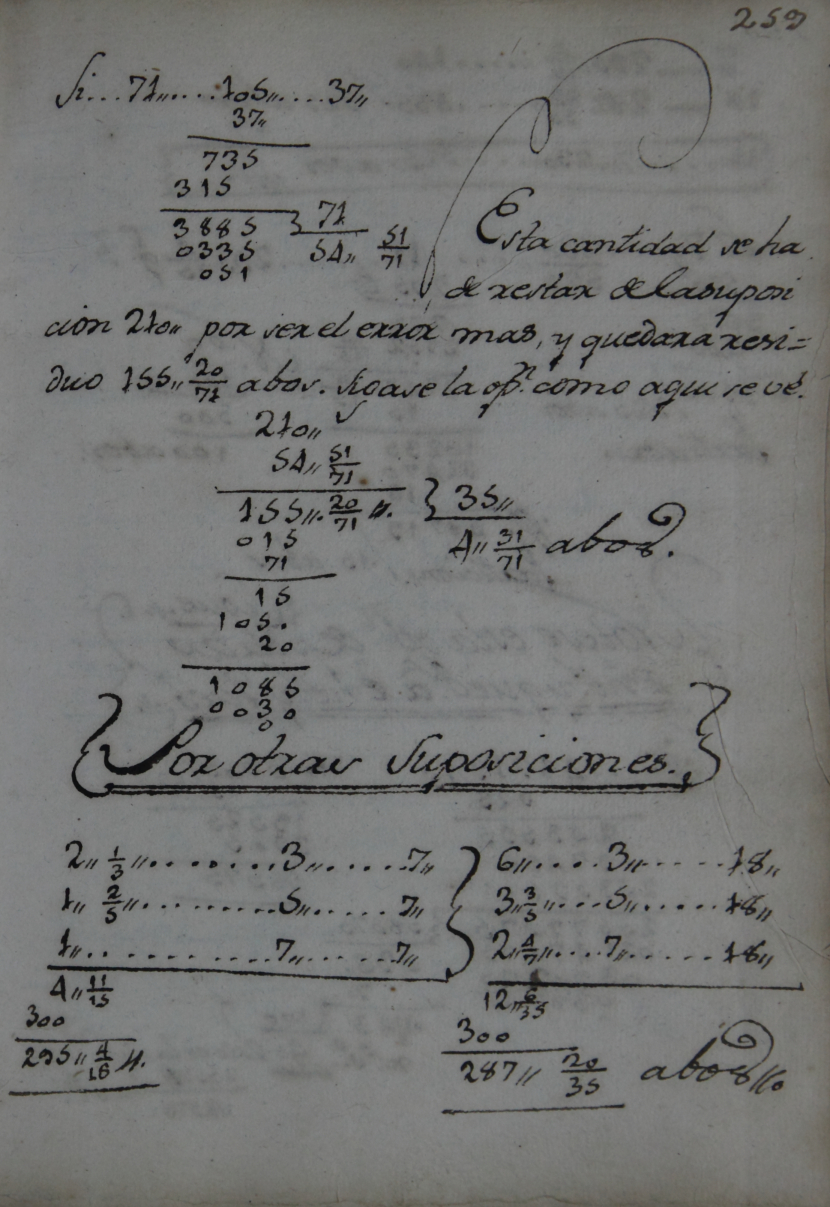 259
Si... 71,,.....105,,....37,,
37,,
735
315
3885 } 71
0335 54,, 51/71
051
Esta cantidad se ha
de restar de la suposi
cion 210,, por ser el error mas, y quedara resi=
duo 155,, 20/71 abos. sigase la opn. como aqui se vé.
210,,
54,, 51/71
155,,. 20/71 ,,. } 35,,
015 4,, 31/71 abos.
71
15
105.
20
1085
0030
0
{ Por otras Suposiciones. }
2,, 1/3 ,,.......3,,.....7,, } 6,,.....3,,......18,,
1,, 2/5 ,,.........5,,.....7,, 3,, 3/5 ,,....5,,......18,,
1,,..........7,,.....7,, 2,, 4/7 ,,....7,,......18,,
4,, 11/15 12,, 6/35
300 300
295,, 4/15 ,,. 287,, 20/35 abos